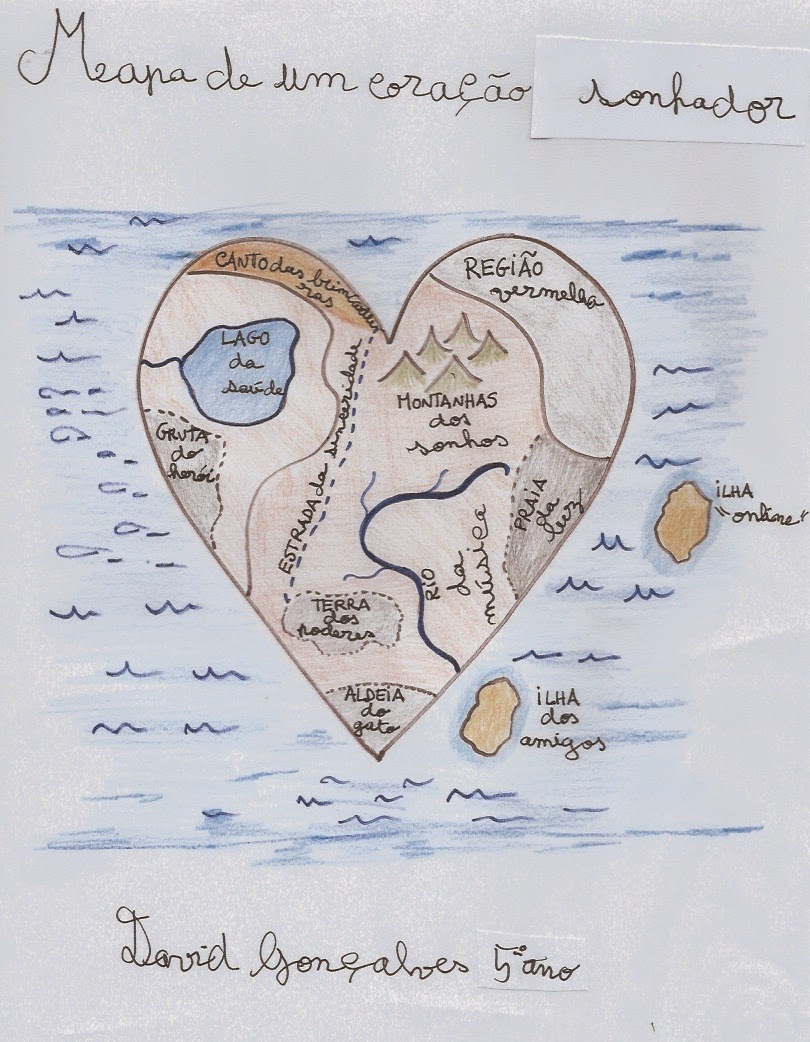 Mapa de um coração sonhador
CANTO das brincadei
ras
REGIÃO
vermelha
LAGO
da
saúde
MONTANHAS
dos
sonhos
GRUTA
do
herói
ESTRADA da sinceridade
PRAIA
da
luz
ILHA
"online"
RIO
da
música
TERRA
dos
poderes
ALDEIA
do
gato
ILHA
dos
amigos
David Gonçalves 5º ano